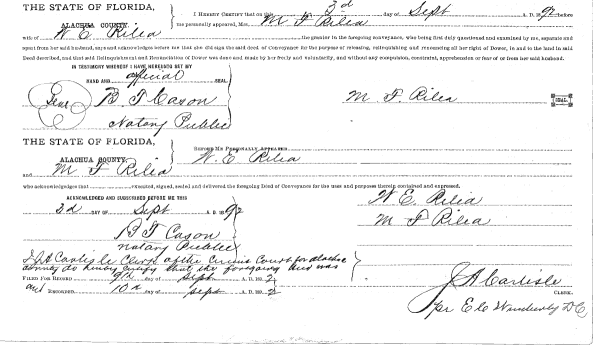 THE STATE OF FLORIDA,
ALACHUA COUNTY.
I HEREBY CERTIFY that on this 3d day of Sept A. D. 1892 before
me personally appeared, Mrs. M F Rilea
wife of W E Rilea the grantor in the foregoing conveyance, who being first duly questioned and examined by me, separate and
apart from her said husband, says and acknowledges before me that she did sign the said deed of Conveyance for the purpose of releasing, relinquishing and renouncing all her right of Dower, in and to the land in said
Deed described, and that said Relinquishment and Renunciation of Dower was done and made by her freely and voluntarily, and without any compulsion, constraint, apprehension or fear of or from her said husband.
IN TESTIMONY WHEREOF I HAVE HEREUNTO SET MY
HAND AND official SEAL
Seal B F Cason M. F. Rilea SEAL.
Notary Public
THE STATE OF FLORIDA,
ALACHUA COUNTY.
BEFORE ME PERSONALLY APPEARED
W. E. Rilea
and M F Rilea
who acknowledges that executed, signed, sealed and delivered the foregoing Deed of Conveyance for the uses and purposes therein contained and expressed.
ACKNOWLEDGED AND SUBSCRIBED BEFORE ME THIS
3d DAY OF Sept A. D. 1892
W. E. Rilea
M F Rilea
B F Cason
Notary Public
I J A Carlisle Clerk of the Circuit Court for Alachua
County do hereby certify that the foregoing deed was
FILED FOR RECORD 9th day of Sept A. D. 1892
and RECORDED 10th day of Sept A. D. 1892
J A Carlisle
CLERK.
per E C D C